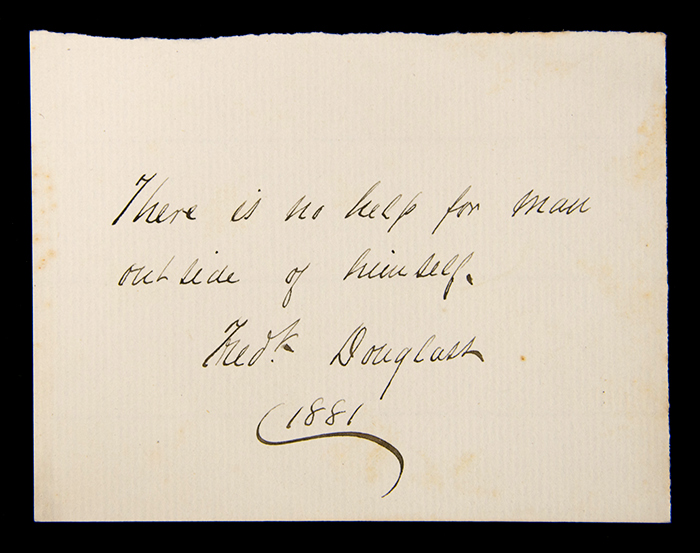 There is no help for man
outside of himself.
Fredk. Douglass
1881